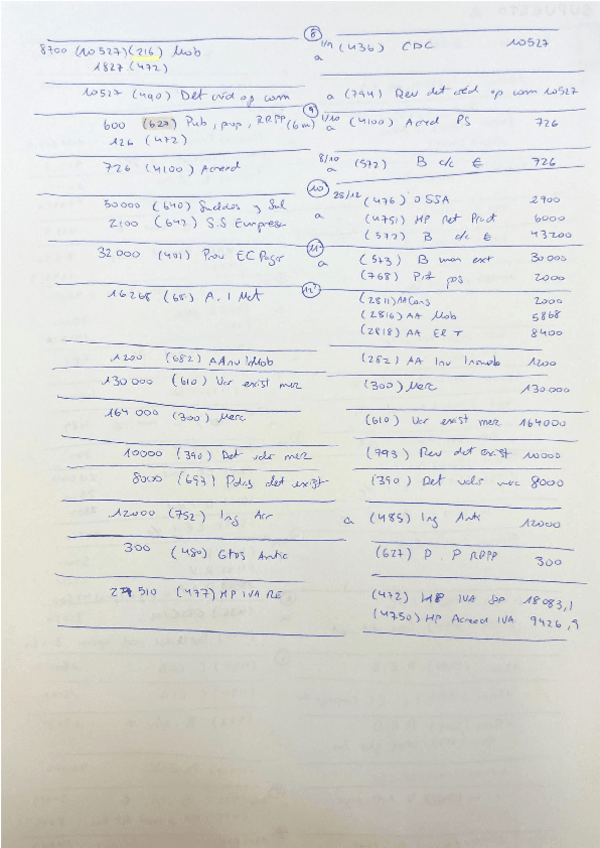 8
8700 (10527)(216) Mob 1/9 (436) CDC 10527
1827 (472) a
10527 (490) Det créd op com a (794) Rev det créd op com 10527
9
600 (627) Pub, prop, RRPP (6m) 1/10 a (4100) Acreed PS 726
126 (472)
726 (4100) Acreed 8/10 a (572) B c/c € 726
10
50000 (640) Sueldos y Sal 25/12 (476) OSSA 2900
2100 (642) S.S Empresa a (4751) HP Ret Pract 6000
(572) B c/c € 43200
11
32000 (401) Prov EC Pagar a (573) B mon ext 30000
(768) Dif pos 2000
12
16268 (681) A. I Mat (2811) AA Cons 2000
(2816) AA Mob 5868
(2818) AA El T 8400
1200 (682) AA Inv Inmob (282) AA Inv Inmob 1200
130000 (610) Var exist mer (300) Merc 130000
164000 (300) Merc (610) Var exist mer 164000
10000 (390) Det valor mer (793) Rev det exist 10000
8000 (693) Pdas det exist (390) Det valor merc 8000
12000 (752) Ing Arr a (485) Ing Antc 12000
300 (480) Gtos Antic (627) P.P RRPP 300
27510 (477) HP IVA RE (472) HP IVA SP 18083,1
(4750) HP Acreed IVA 9426,9